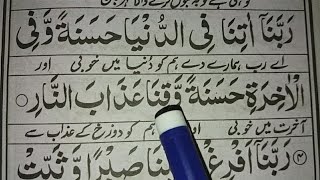 رَبَّنَآ اٰتِنَا فِی الدُّنْیَا حَسَنَةً وَّفِی
اے رب ہمارے دے ہم کو دُنیا میں خوبی اور
الْاٰخِرَةِ حَسَنَةً وَّقِنَا عَذَابَ النَّارِ ○
آخرت میں خوبی اور ہم کو دوزخ کے عذاب سے
رَبَّنَآ اَفْرِغْ نَا صَبْرًا وَّثَبِّتْ